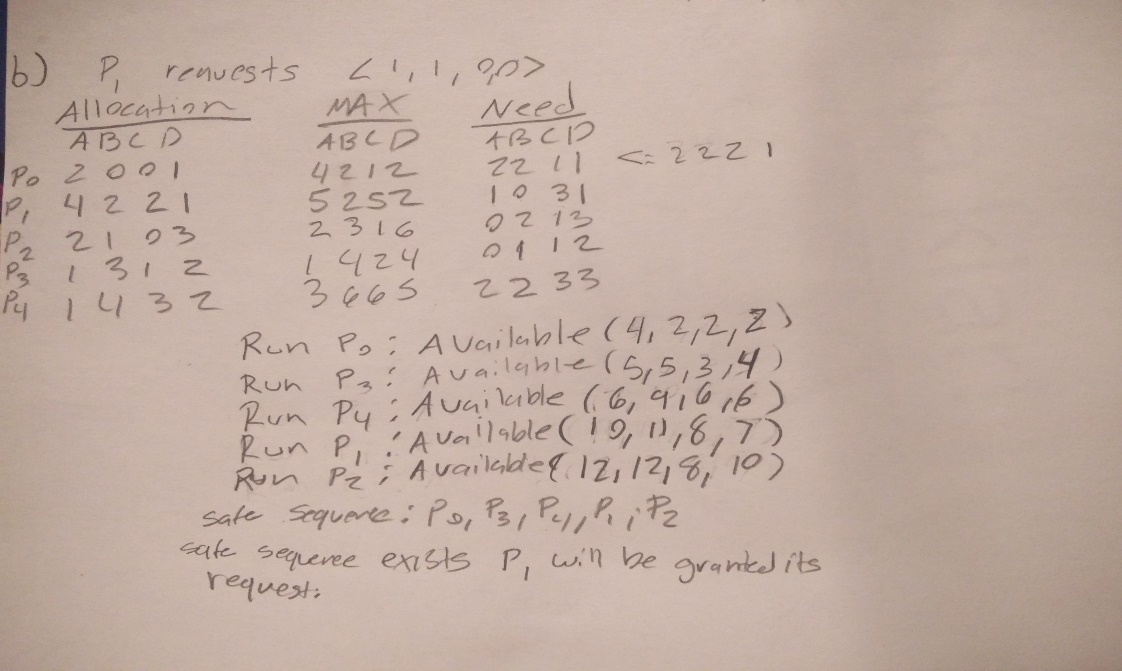 b) P1 requests <1,1,0,0>
Allocation MAX Need
ABCD ABCD ABCD
P0 2001 4212 2211 <= 2221
P1 4221 5252 1031
P2 2103 2316 0213
P3 1312 1424 0112
P4 1432 3665 2233
Run P0: Available (4,2,2,2)
Run P3: Available (5,5,3,4)
Run P4: Available (6,9,6,6)
Run P1: Available (10,11,8,7)
Run P2: Available (12,12,8,10)
safe sequence: P0, P3, P4, P1, P2
safe sequence exists P1 will be granted its
request.